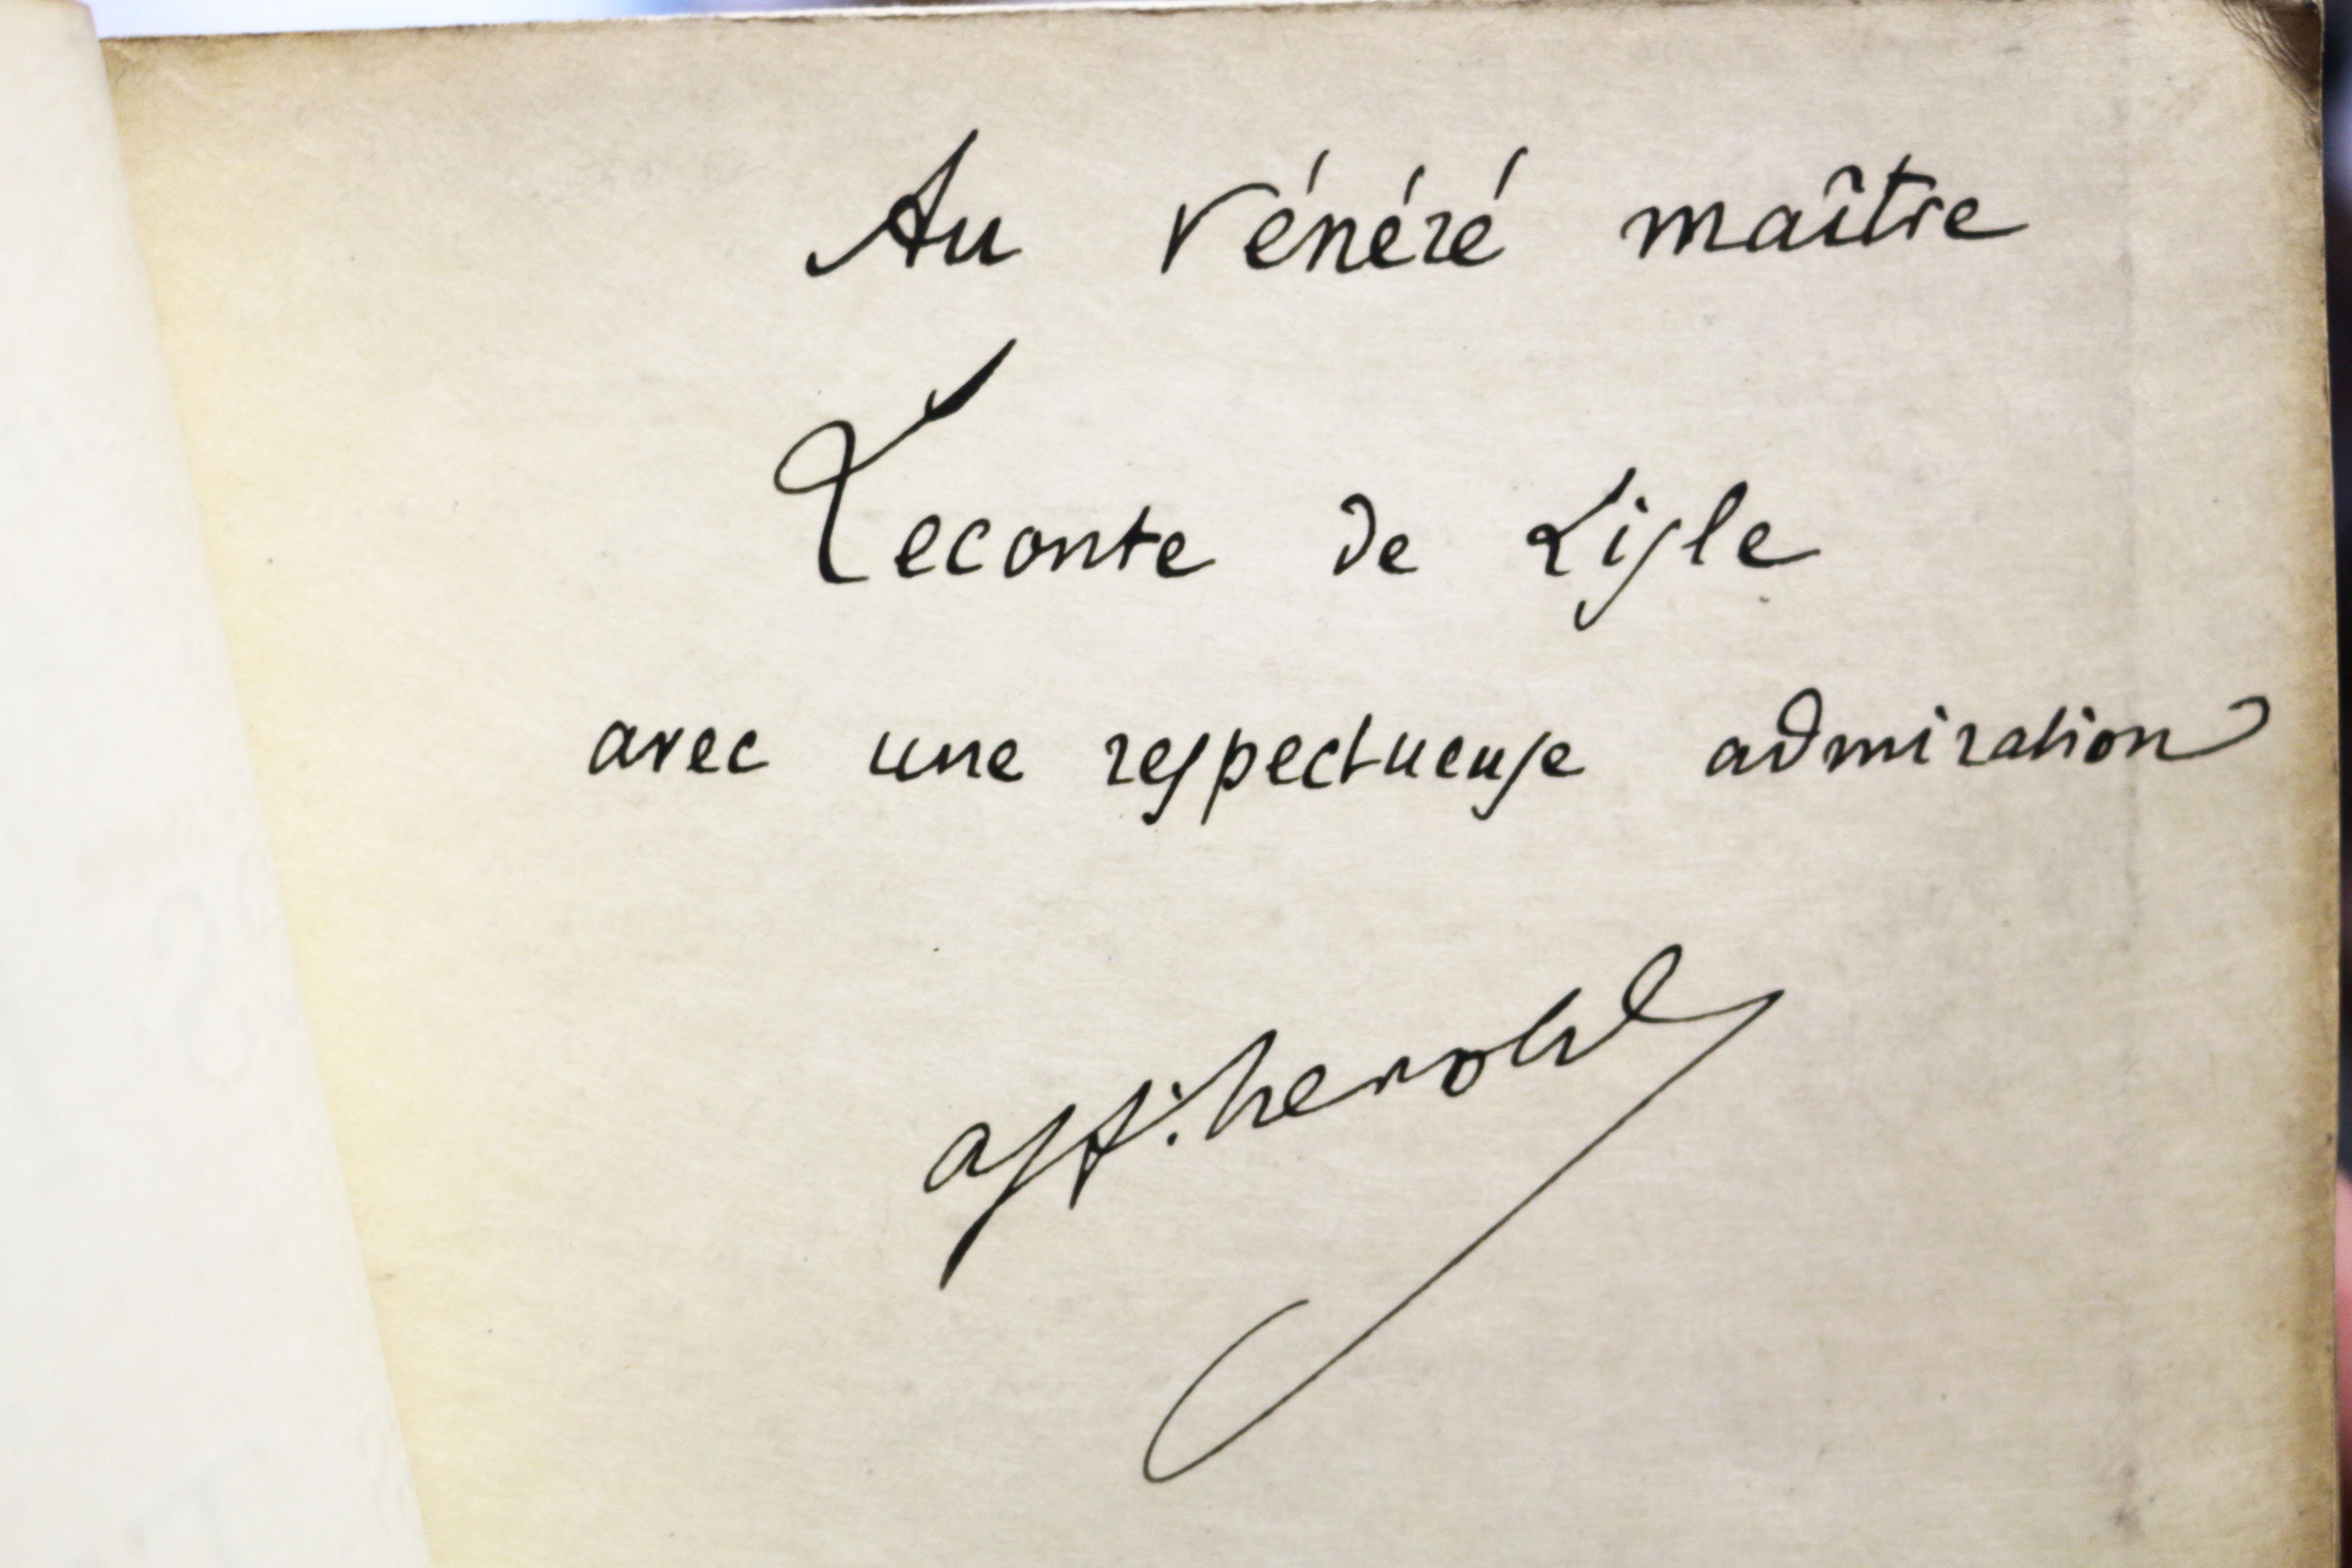 Au vénéré maître
Leconte de Lisle
avec une respectueuse admiration
a f. herold